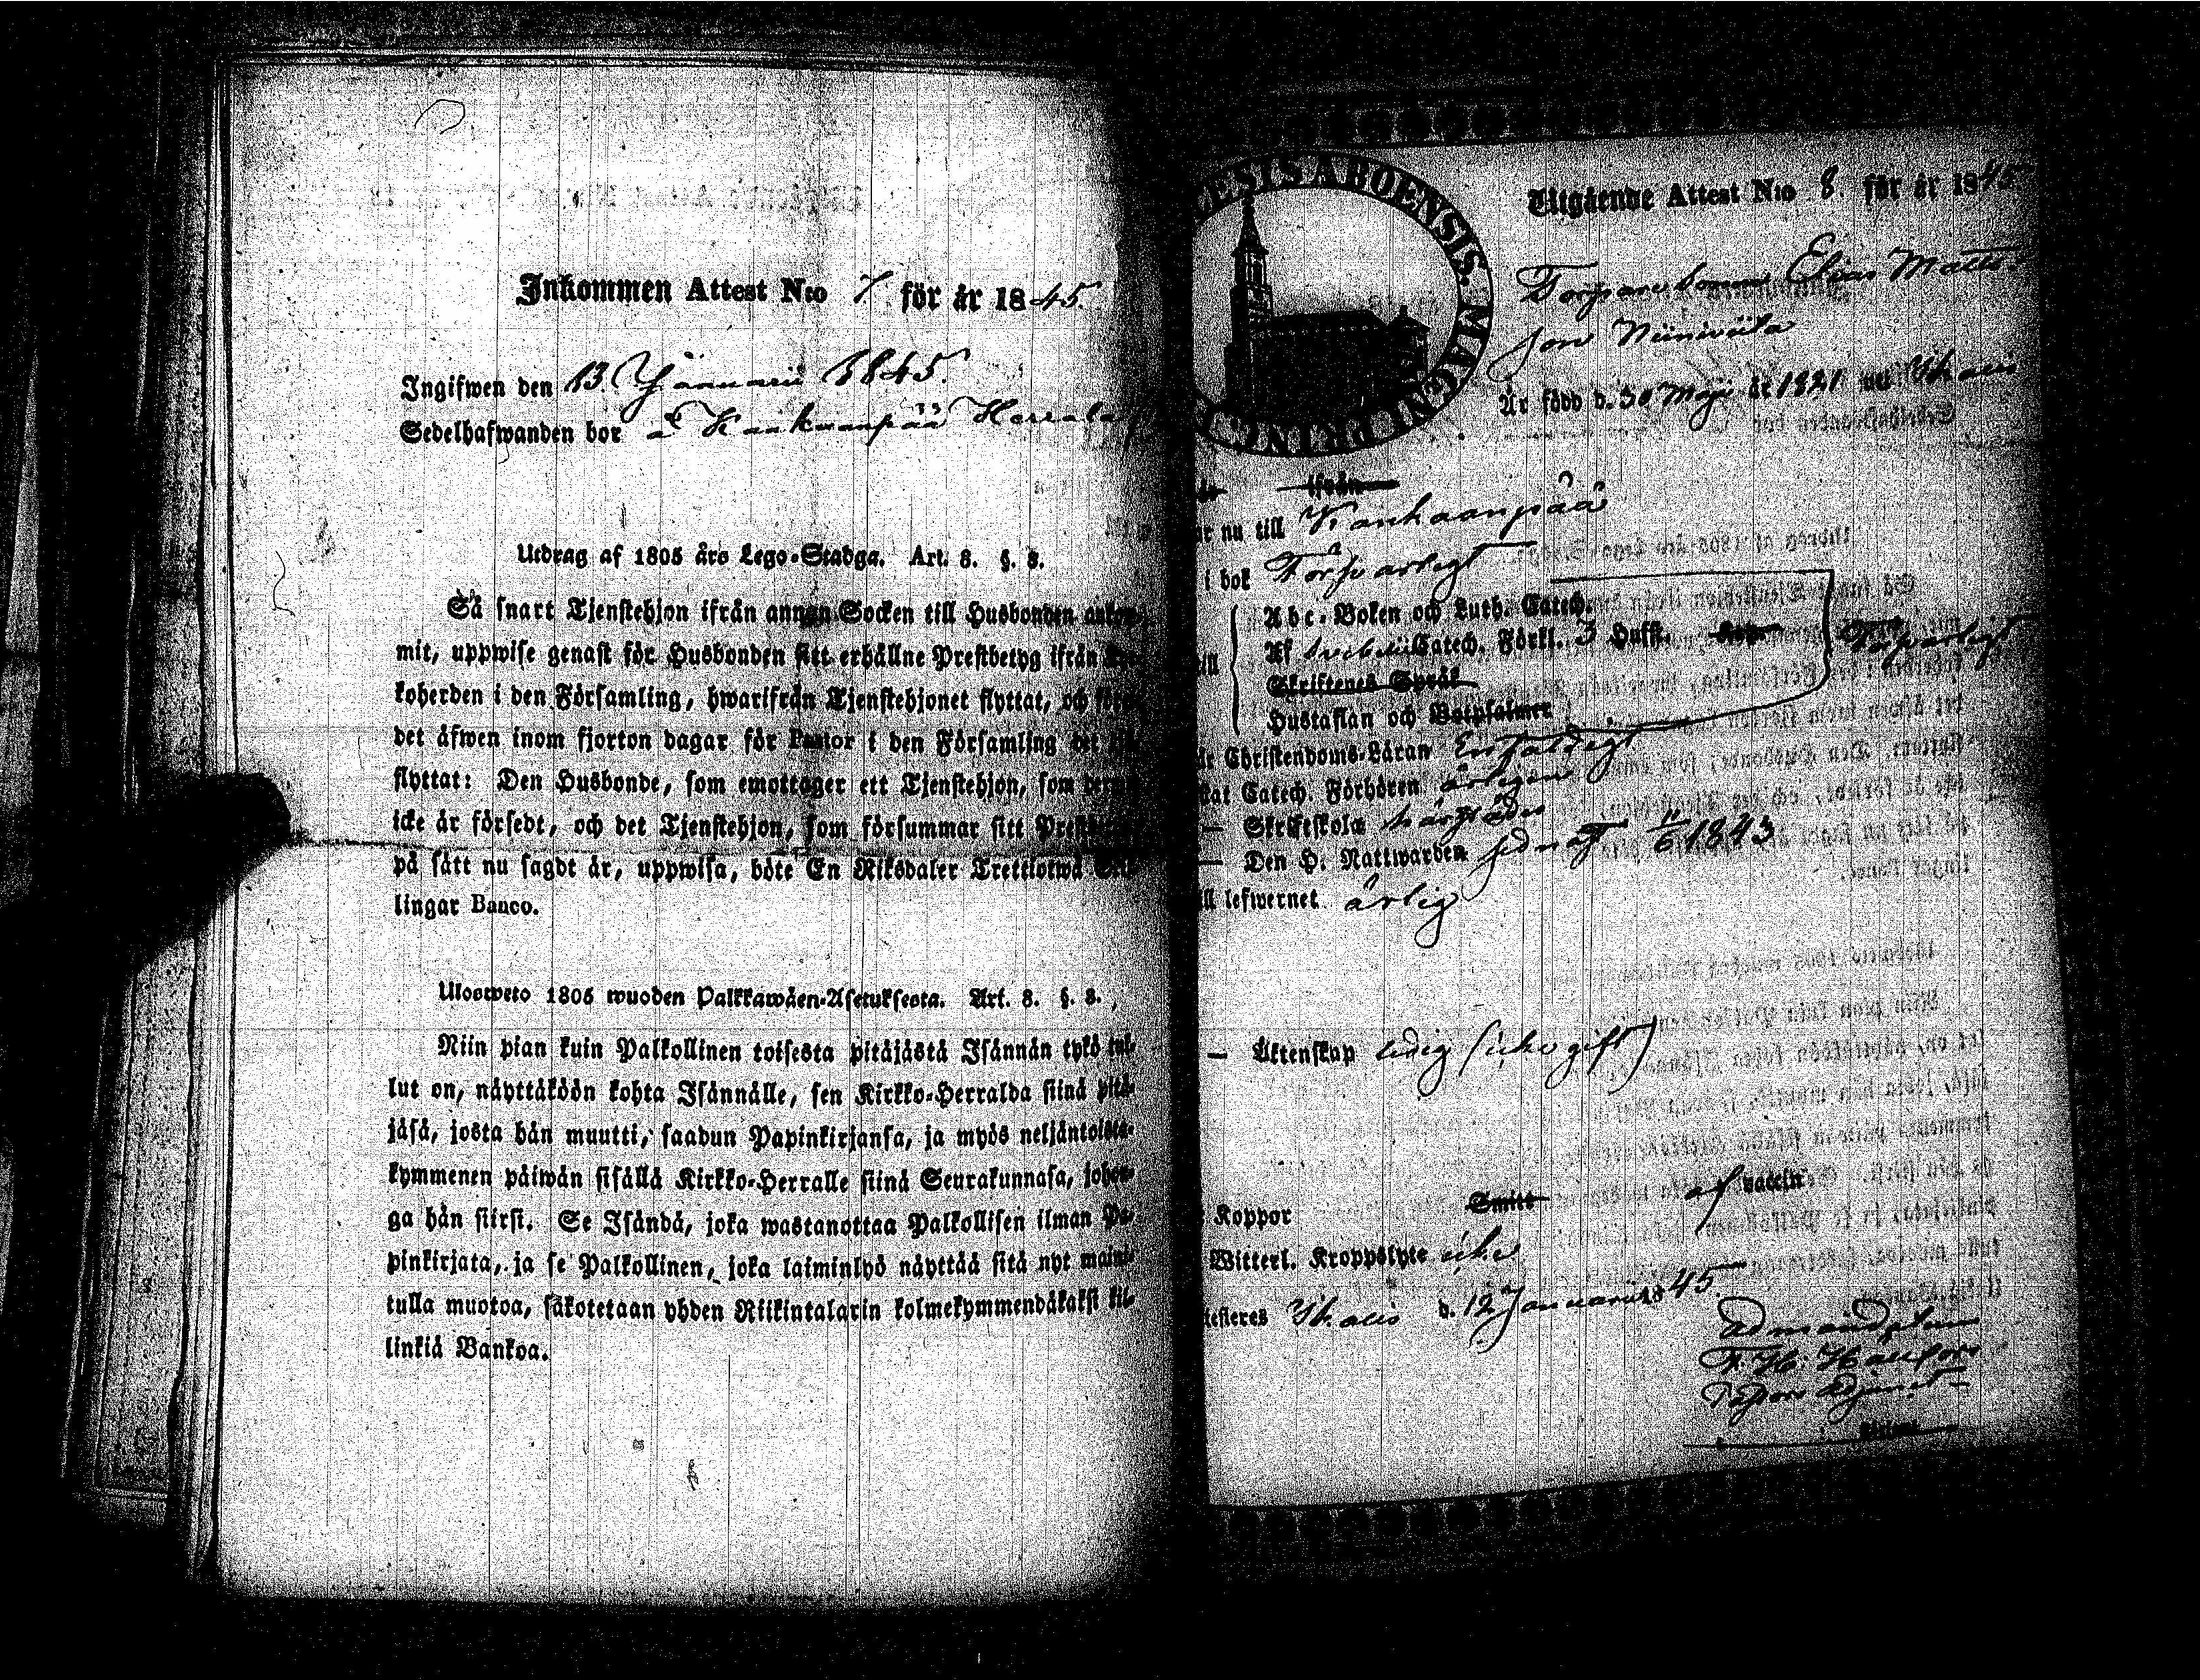 Inkommen Attest N:o 7 för år 1845.
Ingifwen den 13 Januarii 1845.
Sedelhafwanden bor å Kankaanpää
Utdrag af 1805 års Lego-Stadga. Art. 8. §. 8.
Så snart Tjenstehjon ifrån annan Socken till Husbonden ankom-
mit, uppwise genast för Husbonden sitt erhållne Prestbetyg ifrån
koherden i den Församling, hwarifrån Tjenstehjonet flyttat, och
det äfwen inom fjorton dagar för Pastor i den Församling det
flyttat: Den Husbonde, som emottager ett Tjenstehjon, som
icke är försedt, och det Tjenstehjon, som försummar sitt
på sätt nu sagdt är, uppwisa, böte En Riksdaler Trettiotwå
lingar Banco.
Ulosweto 1805 wuoden Palkkawäen-Asetuksesta. Art. 8. §. 8.
Niin pian kuin Palkollinen toisesta pitäjästä Isännän tykö tul-
lut on, näyttäköön kohta Isännälle, sen Kirkko-Herralda siinä pitä-
jäsä, josta hän muutti, saadun Papinkirjansa, ja myös neljäntoista-
kymmenen päiwän sisällä Kirkko-Herralle siinä Seurakunnasa, johon-
ga hän siirsi. Se Isändä, joka wastanottaa Palkollisen ilman Pa-
pinkirjata, ja se Palkollinen, joka laiminlyö näyttää sitä nyt maini-
tulla muotoa, sakotetaan yhden Riikintalarin kolmekymmendäkaksi kil-
linkiä Bankoa.
ESIS ABOENSIS. MAGNI PRINC
Utgående Attest N:o 8. för år 1845
Torpare Sonen Elias Matts-
son Niiniviita
Är född d. 30 Maji år 1821 uti Ikalis
ifrån
nu till Kankaanpää
i bok Förswarligt
Abc-Boken och Luth. Catech.
Af Svebelii Catech. Förkl. 3 Hufst.
Försvarligt
Skriftenes Språk
Hustaflan och Botpsalmer
Christendoms-Läran Enfaldigt
Catech. Förhören årligen
— Skriftskola härstädes
— Den H. Nattwarden sednast 11/6 1843
lefwernet ärlig
— Äktenskap ledig (icke gift)
Koppor Smitt af vaccin
Witterl. Kroppslyte icke
Ikalis d. 12 Januarii 1845.